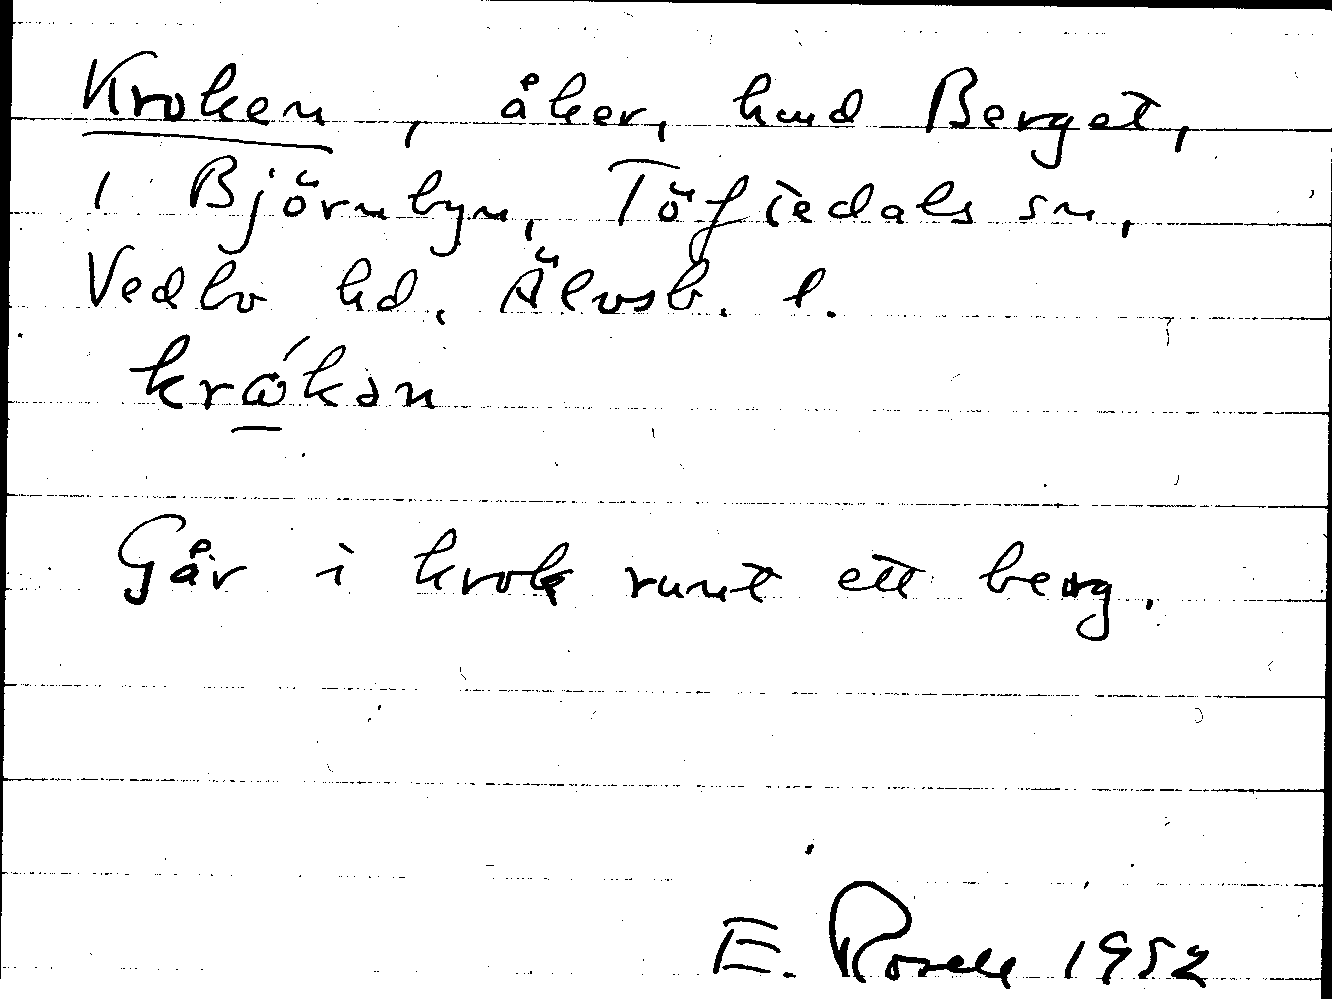 Kroken, åker, hmd Berget,
i Björnbyn, Töftedals sn,
Vedbo hd, Älvsb. l.
krώkən
Går i krok runt ett berg.
E. Rosell 1952